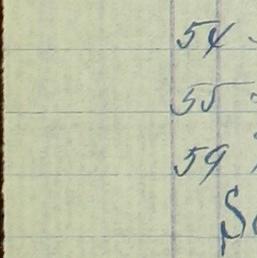 54
55
59